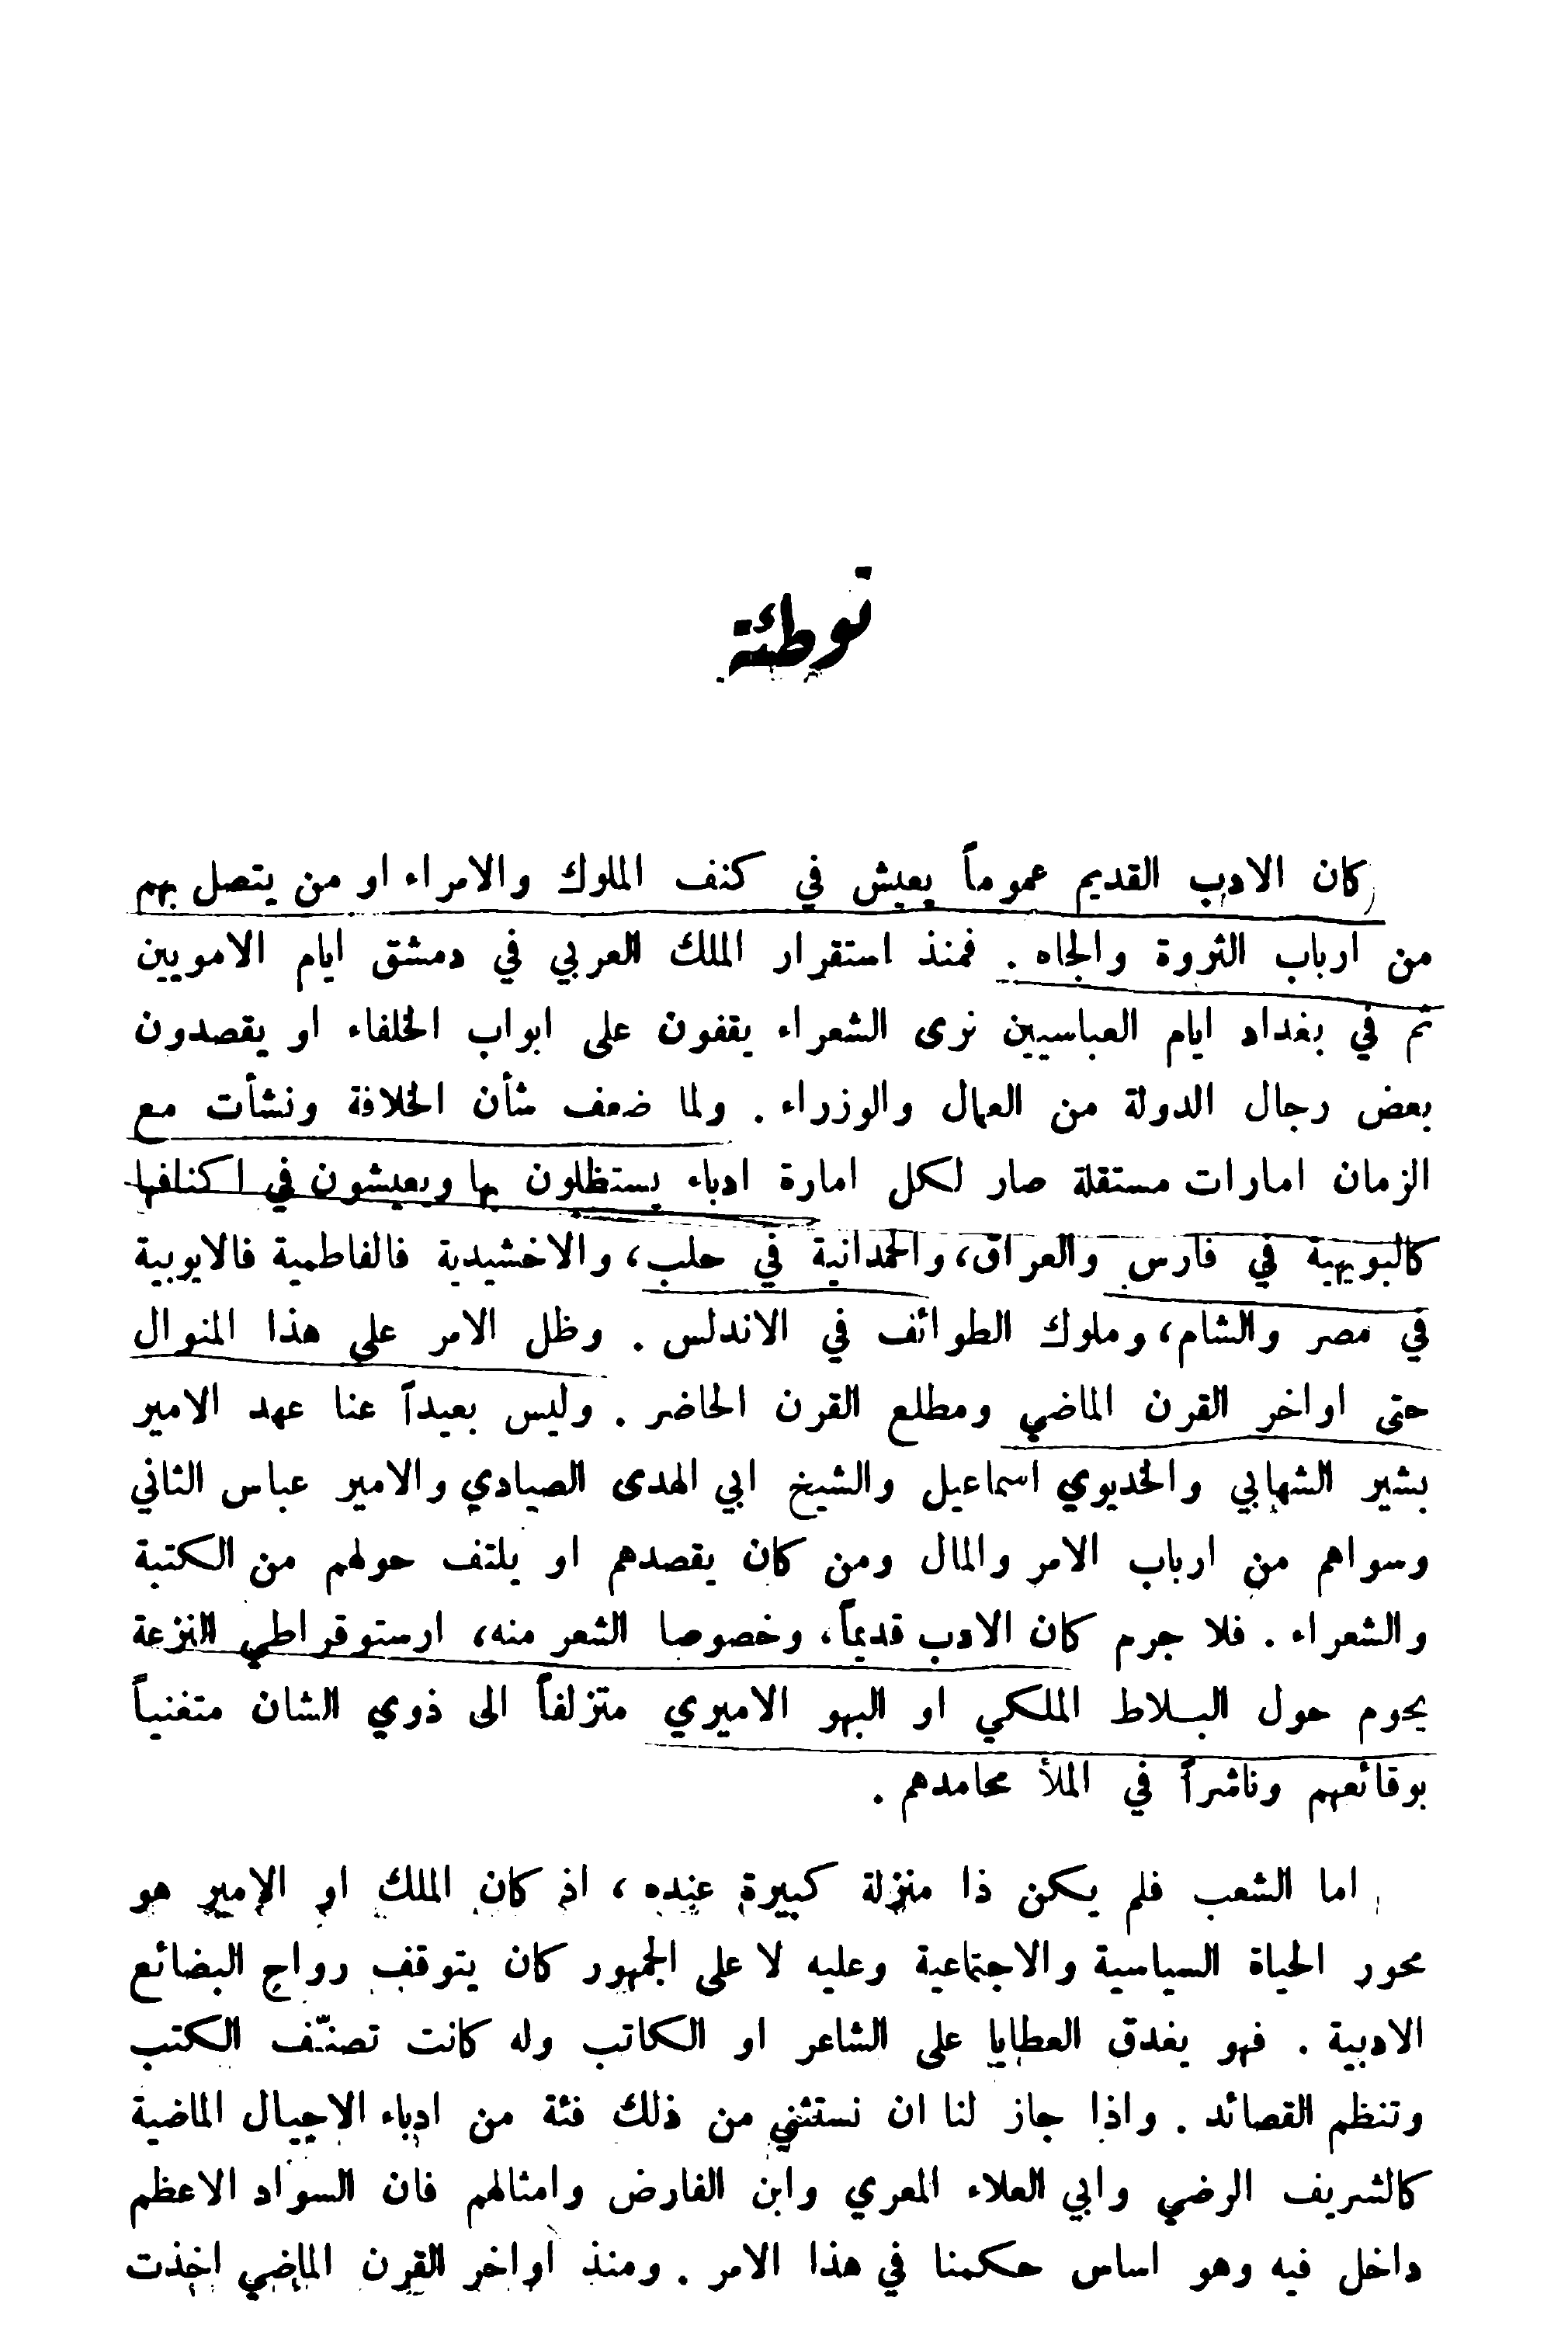 توطئة
كان الادب القديم عموماً يعيش في كنف الملوك والامراء او من يتصل بهم
من ارباب الثروة والجاه . فمنذ استقرار الملك العربي في دمشق ايام الامويين
ثم في بغداد ايام العباسيين نرى الشعراء يقفون على ابواب الخلفاء او يقصدون
بعض رجال الدولة من العمال والوزراء . ولما ضعف شأن الخلافة ونشأت مع
الزمان امارات مستقلة صار لكل امارة ادباء يستظلون بها ويعيشون في اكنافها
كالبويهية في فارس والعراق، والحمدانية في حلب، والاخشيدية فالفاطمية فالايوبية
في مصر والشام، وملوك الطوائف في الاندلس . وظل الامر على هذا المنوال
حتى اواخر القرن الماضي ومطلع القرن الحاضر . وليس بعيداً عنا عهد الامير
بشير الشهابي والخديوي اسماعيل والشيخ ابي الهدى الصيادي والامير عباس الثاني
وسواهم من ارباب الامر والمال ومن كان يقصدهم او يلتف حولهم من الكتبة
والشعراء . فلا جرم كان الادب قديماً، وخصوصا الشعر منه، ارستوقراطي النزعة
يحوم حول البلاط الملكي او البهو الاميري متزلفاً الى ذوي الشان متغنياً
بوقائعهم وناشراً في الملأ محامدهم .
اما الشعب فلم يكن ذا منزلة كبيرة عنده ، اذ كان الملك او الامير هو
محور الحياة السياسية والاجتماعية وعليه لا على الجمهور كان يتوقف رواج البضائع
الادبية . فهو يغدق العطايا على الشاعر او الكاتب وله كانت تصنّف الكتب
وتنظم القصائد . واذا جاز لنا ان نستثني من ذلك فئة من ادباء الاجيال الماضية
كالشريف الرضي وابي العلاء المعري وابن الفارض وامثالهم فان السواد الاعظم
داخل فيه وهو اساس حكمنا في هذا الامر . ومنذ اواخر القرن الماضي اخذت